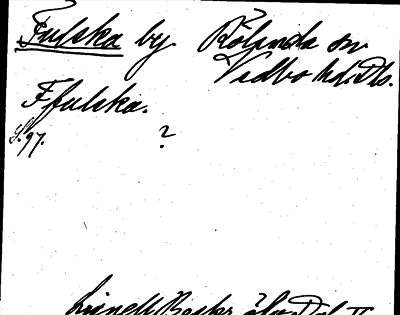 Fulska by Rölanda sn
Vedbo hd. Dls.
Ffulska.
S. 97. ?
Lignell Beskr. öfv. Dal II